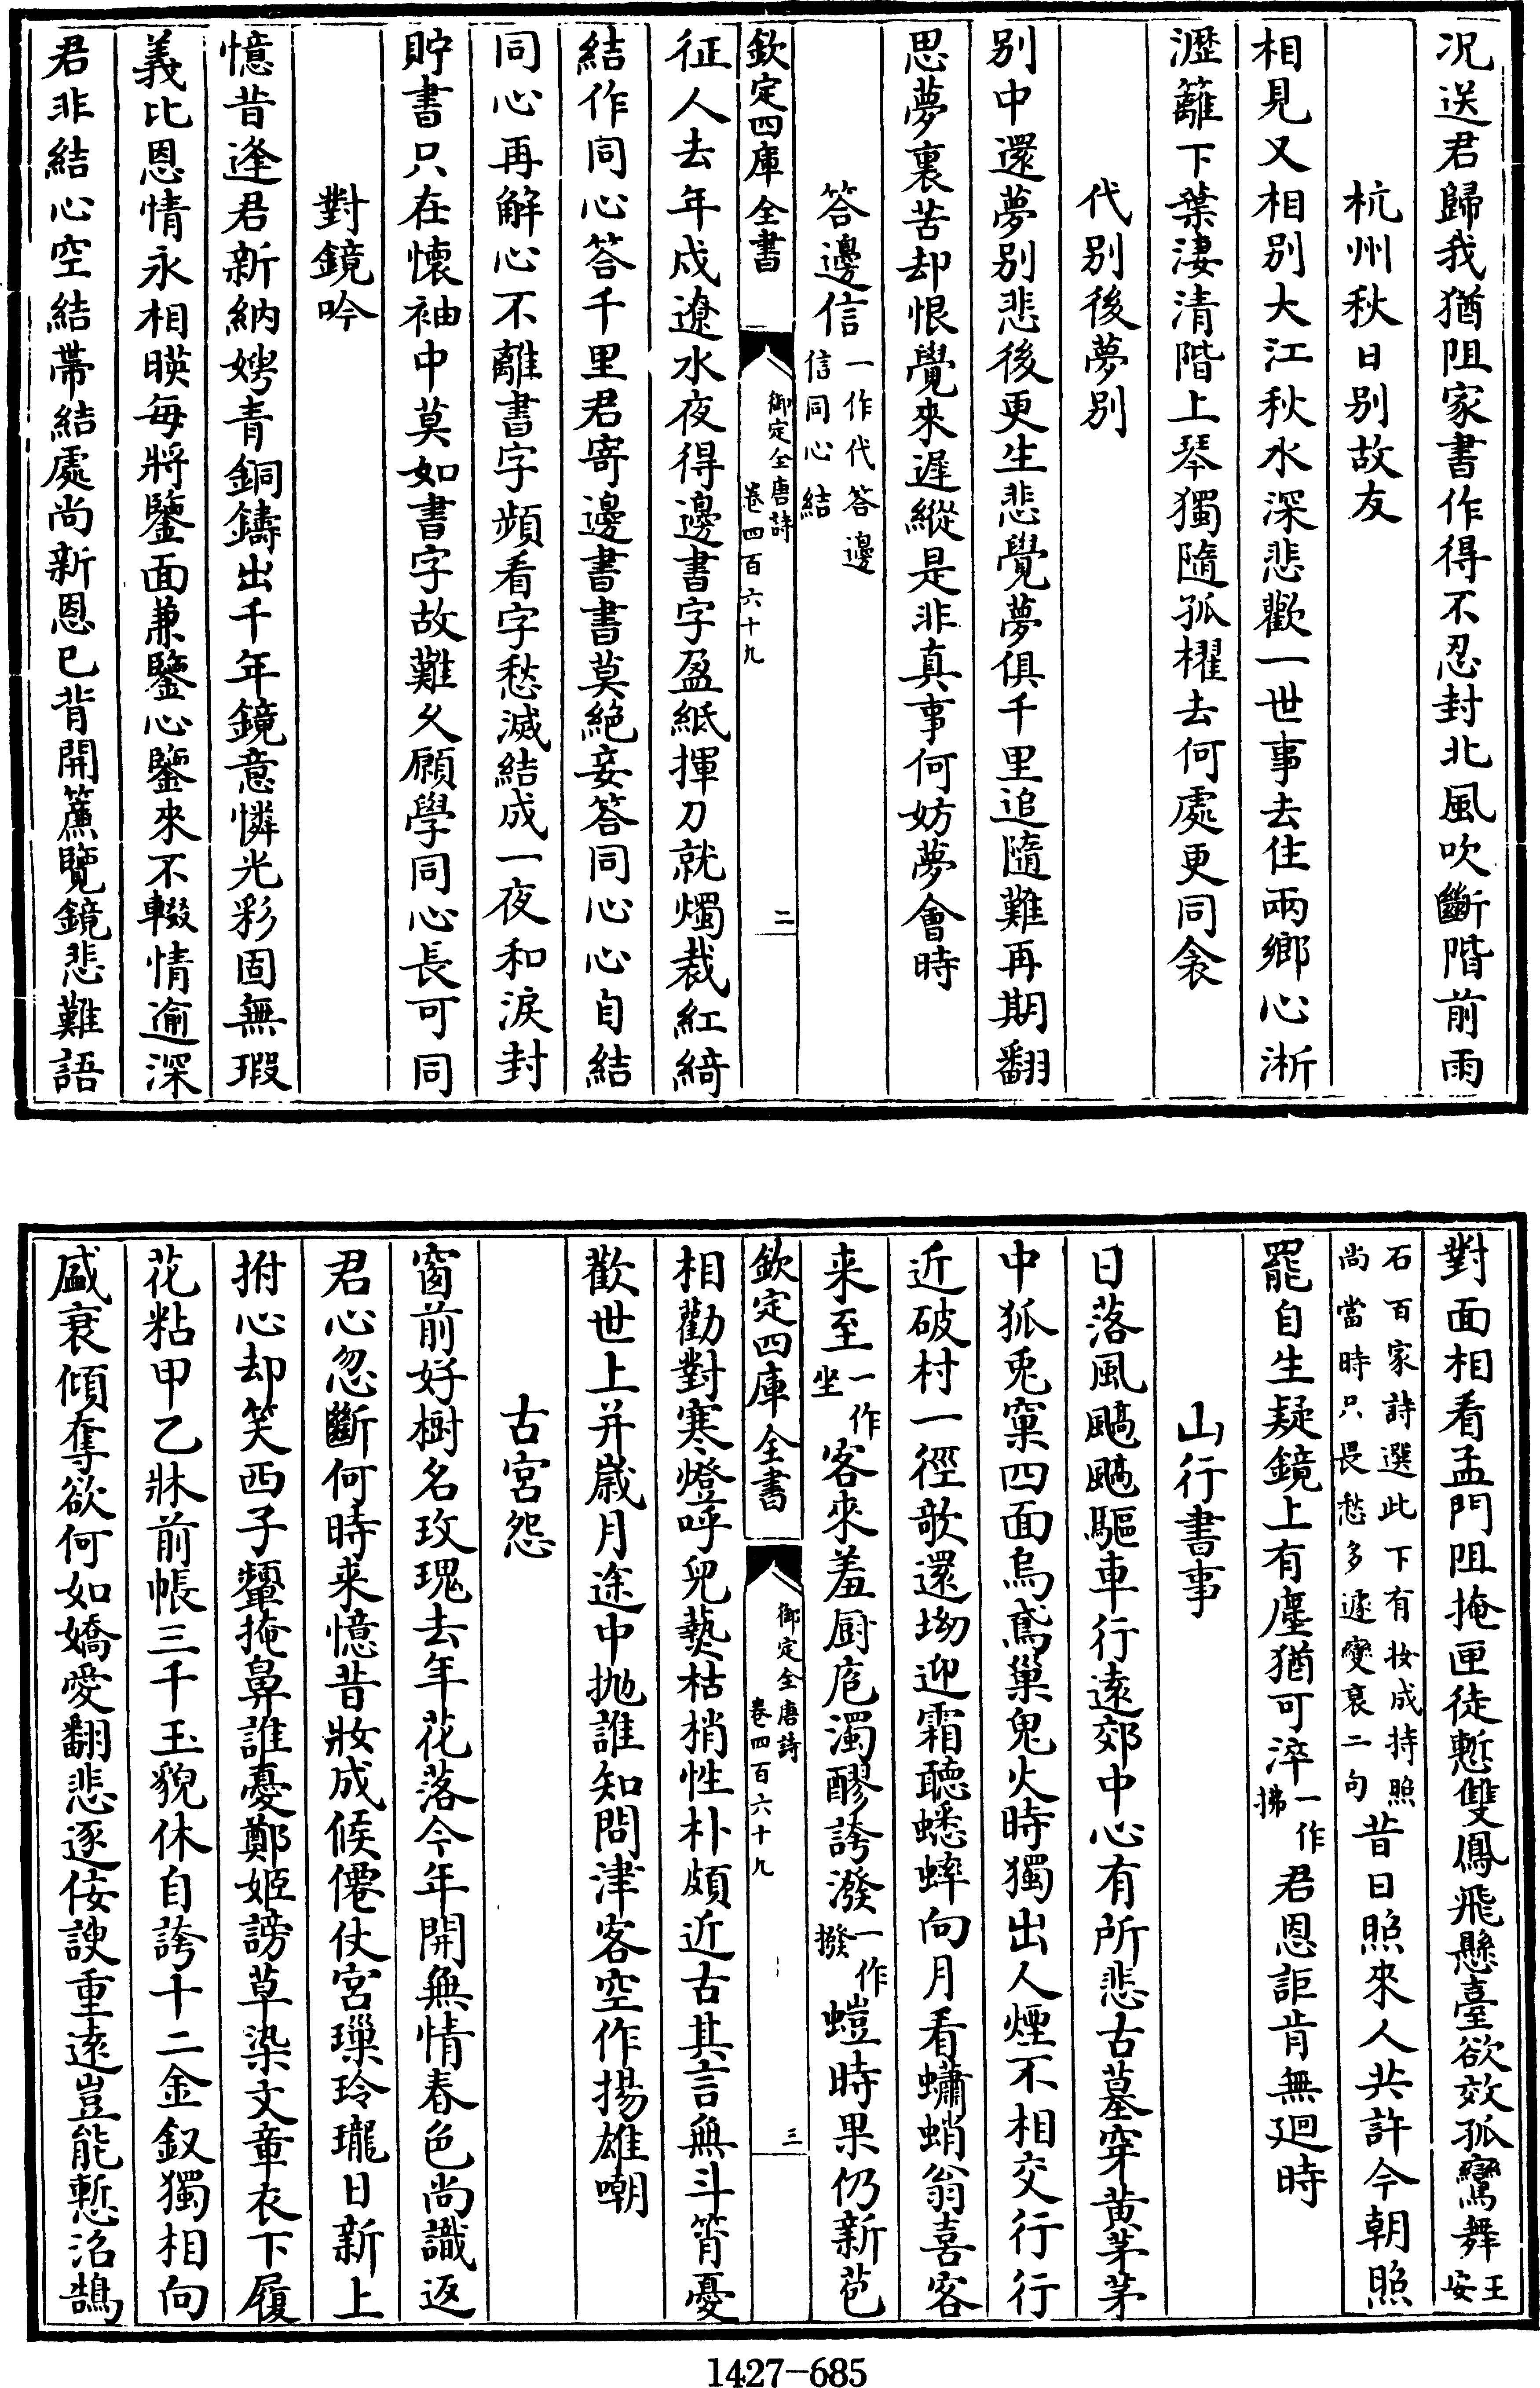 況送君歸我猶阻家書作得不忍封北風吹斷階前雨
杭州秋日别故友
相見又相别大江秋水深悲歡一世事去住兩鄉心淅
瀝籬下葉淒清階上琴獨隨孤櫂去何處更同衾
代别後夢别
别中還夢别悲後更生悲覺夢俱千里追隨難再期翻
思夢裏苦却恨覺來遲縱是非真事何妨夢會時
答邊信一作代答邊信同心結
欽定四庫全書
御定全唐詩
卷四百六十九
二
征人去年戍遼水夜得邊書字盈紙揮刀就燭裁紅綺
結作同心答千里君寄邊書書莫絶妾答同心心自結
同心再解心不離書字頻看字愁滅結成一夜和淚封
貯書只在懷袖中莫如書字故難久願學同心長可同
對鏡吟
憶昔逢君新納娉青銅鑄出千年鏡意憐光彩固無瑕
義比恩情永相暎每將鑒面兼鑒心鑒來不輟情逾深
君非結心空結帶結處尚新恩已背開簾覽鏡悲難語
對面相看孟門阻掩匣徒慙雙鳳飛懸臺欲效孤鸞舞王安
石百家詩選此下有妝成持照尚當時只畏愁多遽變衰二句昔日照來人共許今朝照
罷自生疑鏡上有塵猶可淬一作拂君恩詎肯無迴時
山行書事
日落風颼颼驅車行遠郊中心有所悲古墓穿黄茅茅
中狐兎窠四面烏鳶巢鬼火時獨出人煙不相交行行
近破村一徑欹還坳迎霜聽蟋蟀向月看蠨蛸翁喜客
来至一作坐客來羞厨庖濁醪誇潑一作撥螘時果仍新苞
欽定四庫全書
御定全唐詩
卷四百六十九
三
相勸對寒燈呼兒爇枯梢性朴頗近古其言無斗筲憂
歡世上并歲月途中抛誰知問津客空作揚雄嘲
古宮怨
窗前好樹名玫瑰去年花落今年開無情春色尚識返
君心忽斷何時来憶昔妝成候僊仗宮璅玲瓏日新上
拊心却笑西子顰掩鼻誰憂鄭姬謗草染文章衣下履
花粘甲乙牀前帳三千玉貌休自誇十二金釵獨相向
盛衰傾奪欲何如嬌愛翻悲逐佞諛重遠豈能慙沼鵠
1427-685